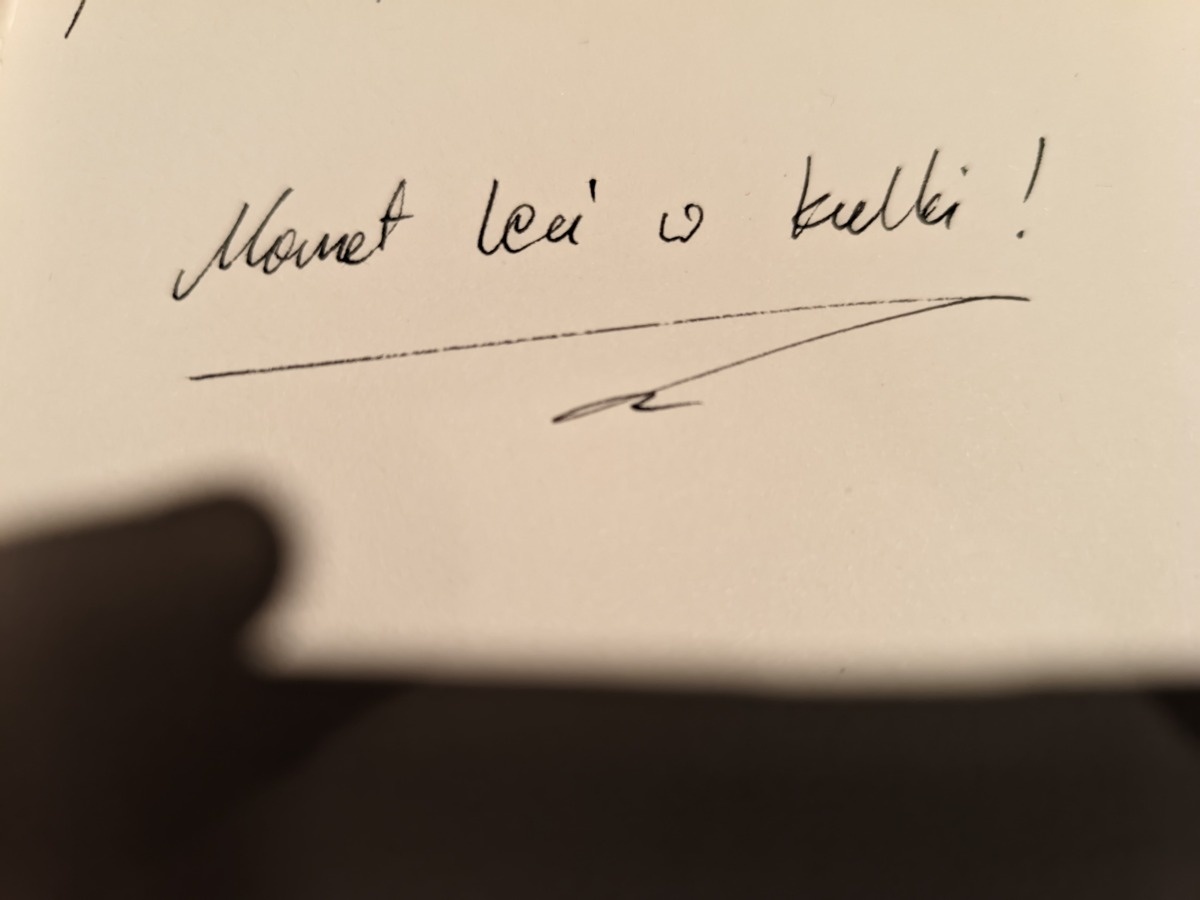 Monet leci w kulki!